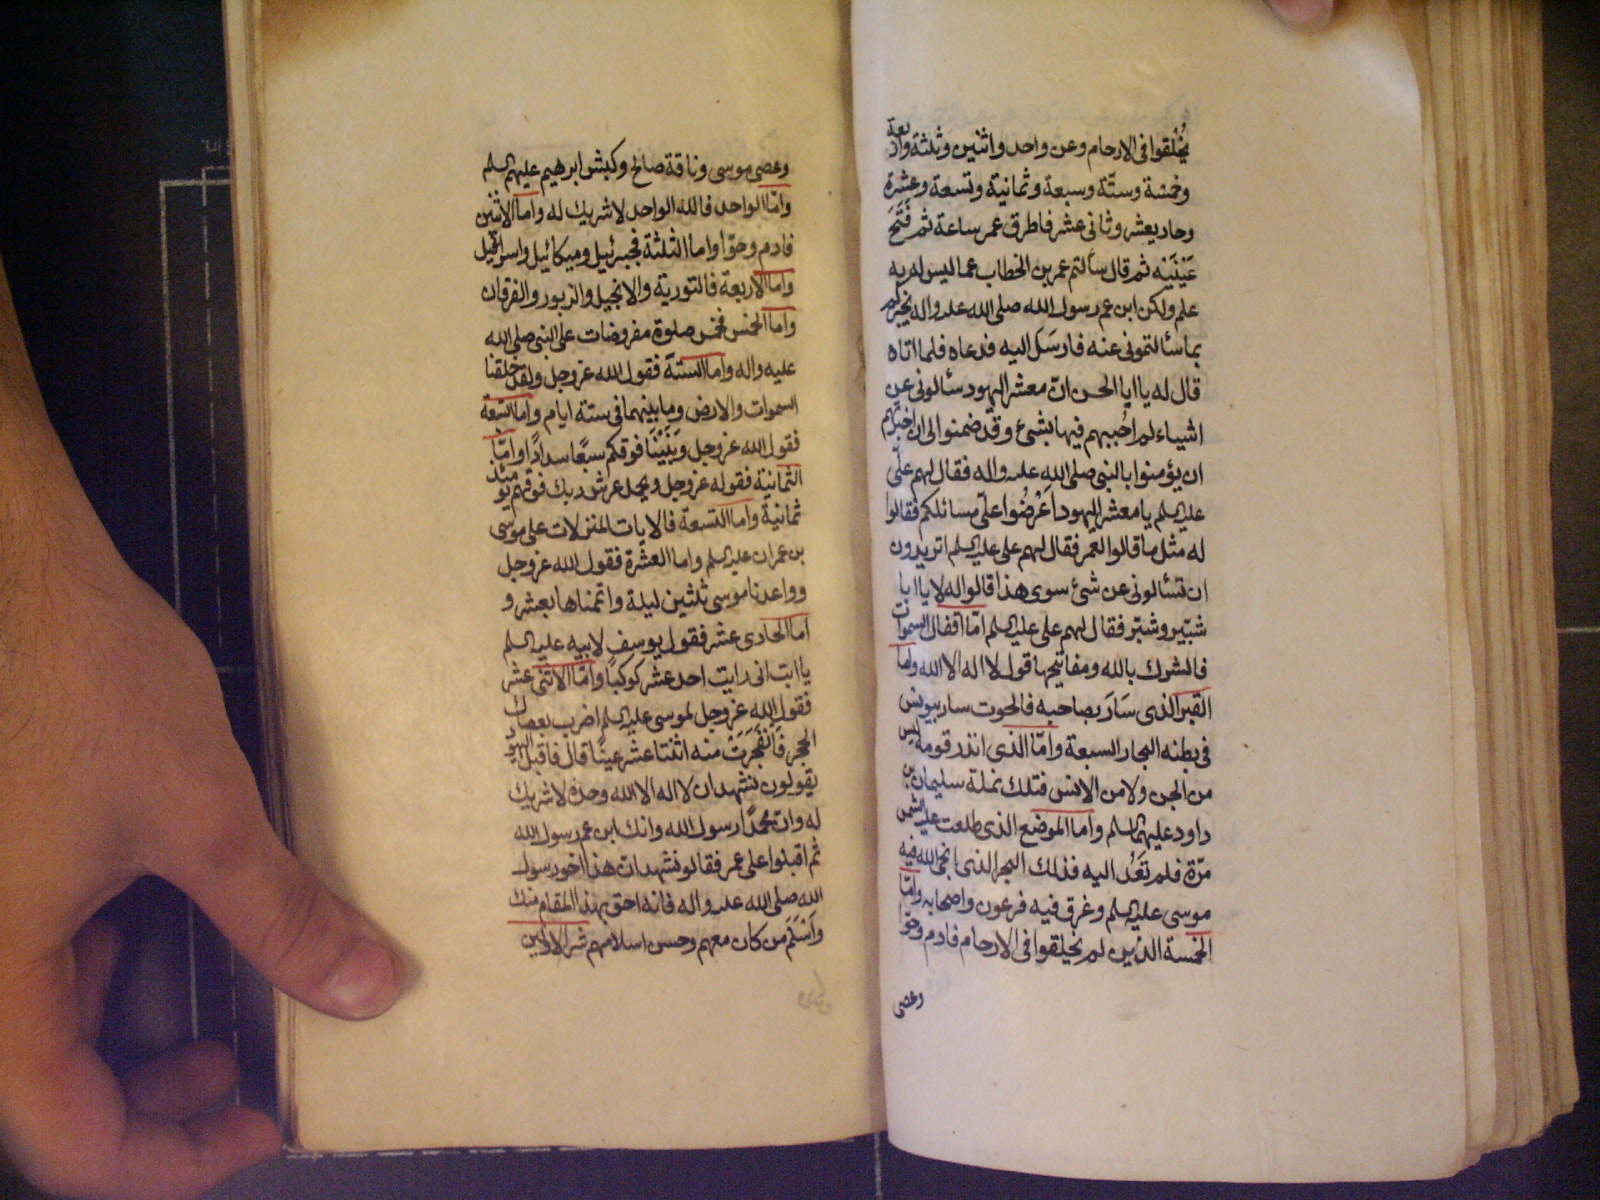 يُخْلقوا فى الارحام وعن واحد واثنين وثلثة واربعة
وخمسة وستّة وسبعة وثمانية وتسعة وعشرة
وحاديعشر وثانى عشر فاطرق عمر ساعة ثم فَتَحَ
عَيْنَيْه ثم قال سألتم عمر بن الخطاب عما ليس له به
علم ولكن ابن عم رسول الله صلى الله عليه واله يخبركم
بما سألتمونى عنه فارسَل اليه فدعاه فلما اتاه
قال له يا ابا الحسن انّ معشر اليهود سألونى عن
اشياء لم اُجبهم فيها بشىء وقد ضمنوا لى ان اخبرتهم
ان يؤمنوا بالنبى صلى الله عليه واله فقال لهم علّى
عليه السلم يا معشر اليهود اَعْرضُوا علّى مسائلكم فقالوا
له مثل ما قالوا لعمر فقال لهم على عليه السلم اتريدون
ان تسألونى عن شئ سوى هذا قالوا له لا يا ابا
شبّير وشبّر فقال لهم على عليه السلم امّا اقفال السموات
فالشرك بالله ومفاتيحها قول لا اله الا الله واما
القبر الذى سَارَ بصاحبه فالحوت سار بيونس
فى بطنه البحار السبعة وامّا الذى انذر قومه ليس
من الجن ولا من الانس فتلك نملة سليمان بن
داود عليهما السلم واما الموضع الذى طلعت عليه الشمس
مرّة فلم تَعُد اليه فذلك البحر الذى انجى الله فيه
موسى عليه السلم وغرق فيه فرعون واصحابه وامّا
الخمسة الذين لم يخلقوا فى الارحام فادم وحوّا
وعصى
وعصى موسى وناقة صالح وكبش ابرهيم عليهم السلم
وامّا الواحد فالله الواحد لا شريك له واما الاثنين
فادم وحوّا واما الثلثة فجبرئيل وميكائيل واسرافيل
واما الاربعة فالتورية والانجيل والزبور والفرقان
واما الخمس فخمس صلوة مفروضات على النبى صلى الله
عليه واله واما الستّة فقول الله عز وجل ولقد خلقنا
السموات والارض وما بينهما فى ستة ايام واما السّبعة
فقول الله عز وجل وَبَنَيْنَا فوقكم سبعًا سدادًا وامّا
الثمانية فقوله عز وجل ويحمل عرش ربك فوقهم يومئذ
ثمانية واما التسعة فالايات المنزلات على موسى
بن عمران عليه السلم واما العشرة فقول الله عز وجل
وواعدنا موسى ثلثين ليلة واتممناها بعشر و
اما الحادى عشر فقول يوسف لابيه عليه السلم
يا ابت انى رايت احد عشر كوكبًا وامّا الاثنى عشر
فقول الله عز وجل لموسى عليه السلم اضرب بعصاك
الحجر فَانْفَجَرَتْ منه اثنتا عشر عينًا قال فاقبل اليهود
يقولون نشهد ان لا اله الا الله وحده لا شريك
له وان محمدًا رسول الله وانك ابن عم رسول الله
ثم اقبلوا على عمر فقالو نشهد ان هذا اخو رسول
الله صلى الله عليه واله فانه احق بهذا المقام منك
واَسْلَمَ من كان معهم وحسن اسلامهم